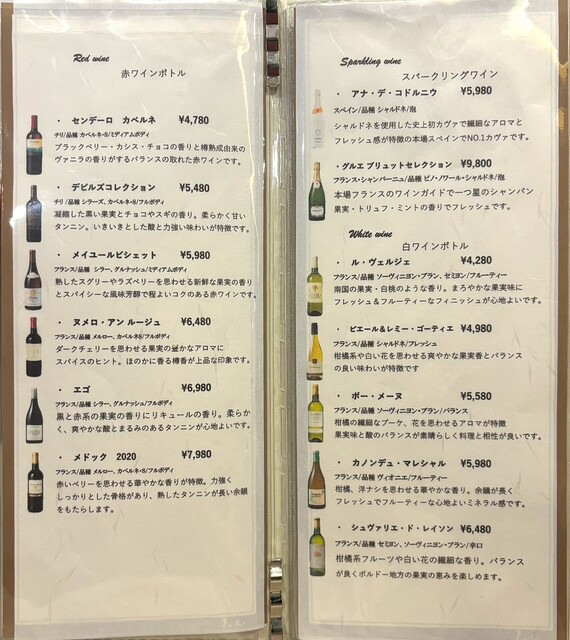 Red wine
赤ワインボトル
・ センデーロ カベルネ ¥4,780
チリ/品種 カベルネ・S/ミディアムボディ
ブラックベリー・カシス・チョコの香りと樽熟成由来の
ヴァニラの香りがするバランスの取れた赤ワインです。
・ デビルズコレクション ¥5,480
チリ/品種 シラーズ、カベルネ・S/フルボディ
凝縮した黒い果実とチョコやスギの香り。柔らかく甘い
タンニン。いきいきとした酸と力強い味わいが特徴です。
・ メイユールピシェット ¥5,980
フランス/品種 シラー、グルナッシュ/ミディアムボディ
熟したスグリーやラズベリーを思わせる新鮮な果実の香り
とスパイシーな風味芳醇で程よいコクのある赤ワインです。
・ ヌメロ・アン ルージュ ¥6,480
フランス/品種 メルロー、カベルネ・S/フルボディ
ダークチェリーを思わせる果実の豊かなアロマに
スパイスのヒント。ほのかに香る樽香が上品な印象です。
・ エゴ ¥6,980
フランス/品種 シラー、グルナッシュ/フルボディ
黒と赤系の果実の香りにリキュールの香り。柔らか
く、爽やかな酸とまるみのあるタンニンが心地よいです。
・ メドック 2020 ¥7,980
フランス/品種 メルロー、カベルネ・S/フルボディ
赤いベリーを思わせる華やかな香りが特徴。力強く
しっかりとした骨格があり、熟したタンニンが長い余韻
をもたらします。
Sparkling wine
スパークリングワイン
・ アナ・デ・コドルニウ ¥5,980
スペイン/品種 シャルドネ/泡
シャルドネを使用した史上初カヴァで繊細なアロマと
フレッシュ感が特徴の本場スペインでNO.1カヴァです。
・グルエ ブリュットセレクション ¥9,800
フランス・シャンパーニュ/品種 ピノ・ノワール・シャルドネ/泡
本場フランスのワインガイドで一つ星のシャンパン
果実・トリュフ・ミントの香りでフレッシュです。
White wine
白ワインボトル
・ ル・ヴェルジェ ¥4,280
フランス/品種 ソーヴィニヨン・ブラン、セミヨン/フルーティー
南国の果実・白桃のような香り。まろやかな果実味に
フレッシュ&フルーティーなフィニッシュが心地よいです。
・ ピエール&レミー・ゴーティエ ¥4,980
フランス/品種 シャルドネ/フレッシュ
柑橘系や白い花を思わせる爽やかな果実香とバランス
の良い味わいが特徴です
・ ボー・メーヌ ¥5,580
フランス/品種 ソーヴィニヨン・ブラン/バランス
柑橘の繊細なブーケ、花を思わせるアロマが特徴
果実味と酸のバランスが素晴らしく料理と相性が良いです。
・ カノンデュ・マレシャル ¥5,980
フランス/品種 ヴィオニエ/フルーティー
柑橘、洋ナシを思わせる華やかな香り。余韻が長く
フレッシュでフルーティーな心地よいミネラル感です。
・ シュヴァリエ・ド・レイソン ¥6,480
フランス/品種 セミヨン、ソーヴィニヨン・ブラン/辛口
柑橘系フルーツや白い花の繊細な香り。バランス
が良くボルドー地方の果実の恵みを楽しめます。